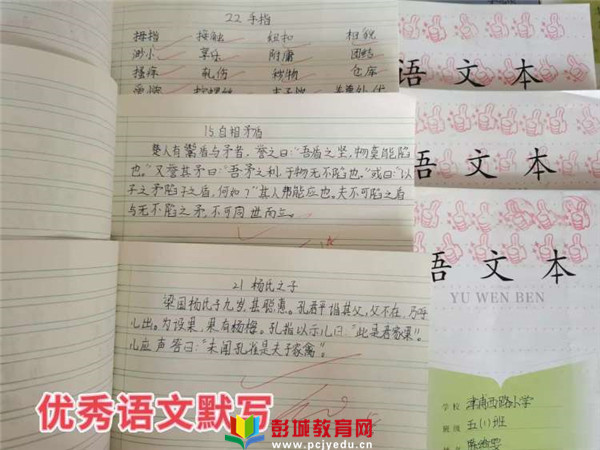 22 手指
拇指 接触 纽扣 相貌
渺小 享乐 附庸 团结
搔痒 轧伤 秽物 仓库
15 自相矛盾
楚人有鬻盾与矛者，誉之曰：“吾盾之坚，物莫能陷
也。”又誉其矛曰：“吾矛之利，于物无不陷也。”或曰：“以
子之矛陷子之盾，何如？”其人弗能应也。夫不可陷之盾
与无不陷之矛，不可同世而立。
21 杨氏之子
梁国杨氏子九岁，甚聪惠。孔君平诣其父，父不在，乃呼
儿出。为设果，果有杨梅。孔指以示儿曰：“此是君家果。”
儿应声答曰：“未闻孔雀是夫子家禽。”
语文本
语文本
语文本
YU WEN BEN
学校 津浦西路小学
班级 五(1)班
优秀语文默写
彭城教育网
www.pcjyedu.cn